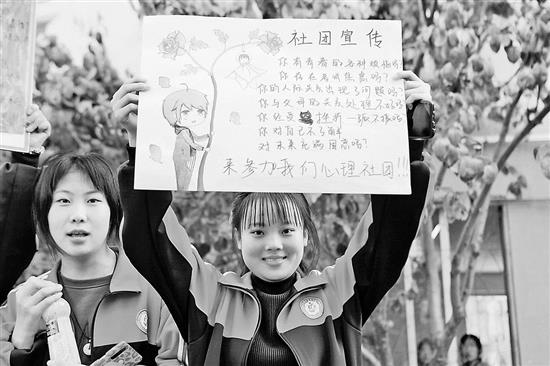 社团宣传
你有青春的各种烦恼吗?
你存在考试焦虑吗?
你的人际关系出现了问题吗?
你与父母的关系处理不好吗
你经受 挫折 一蹶不振吗
你对自己不了解
对未来充满困惑吗?
来参加我们心理社团!!!